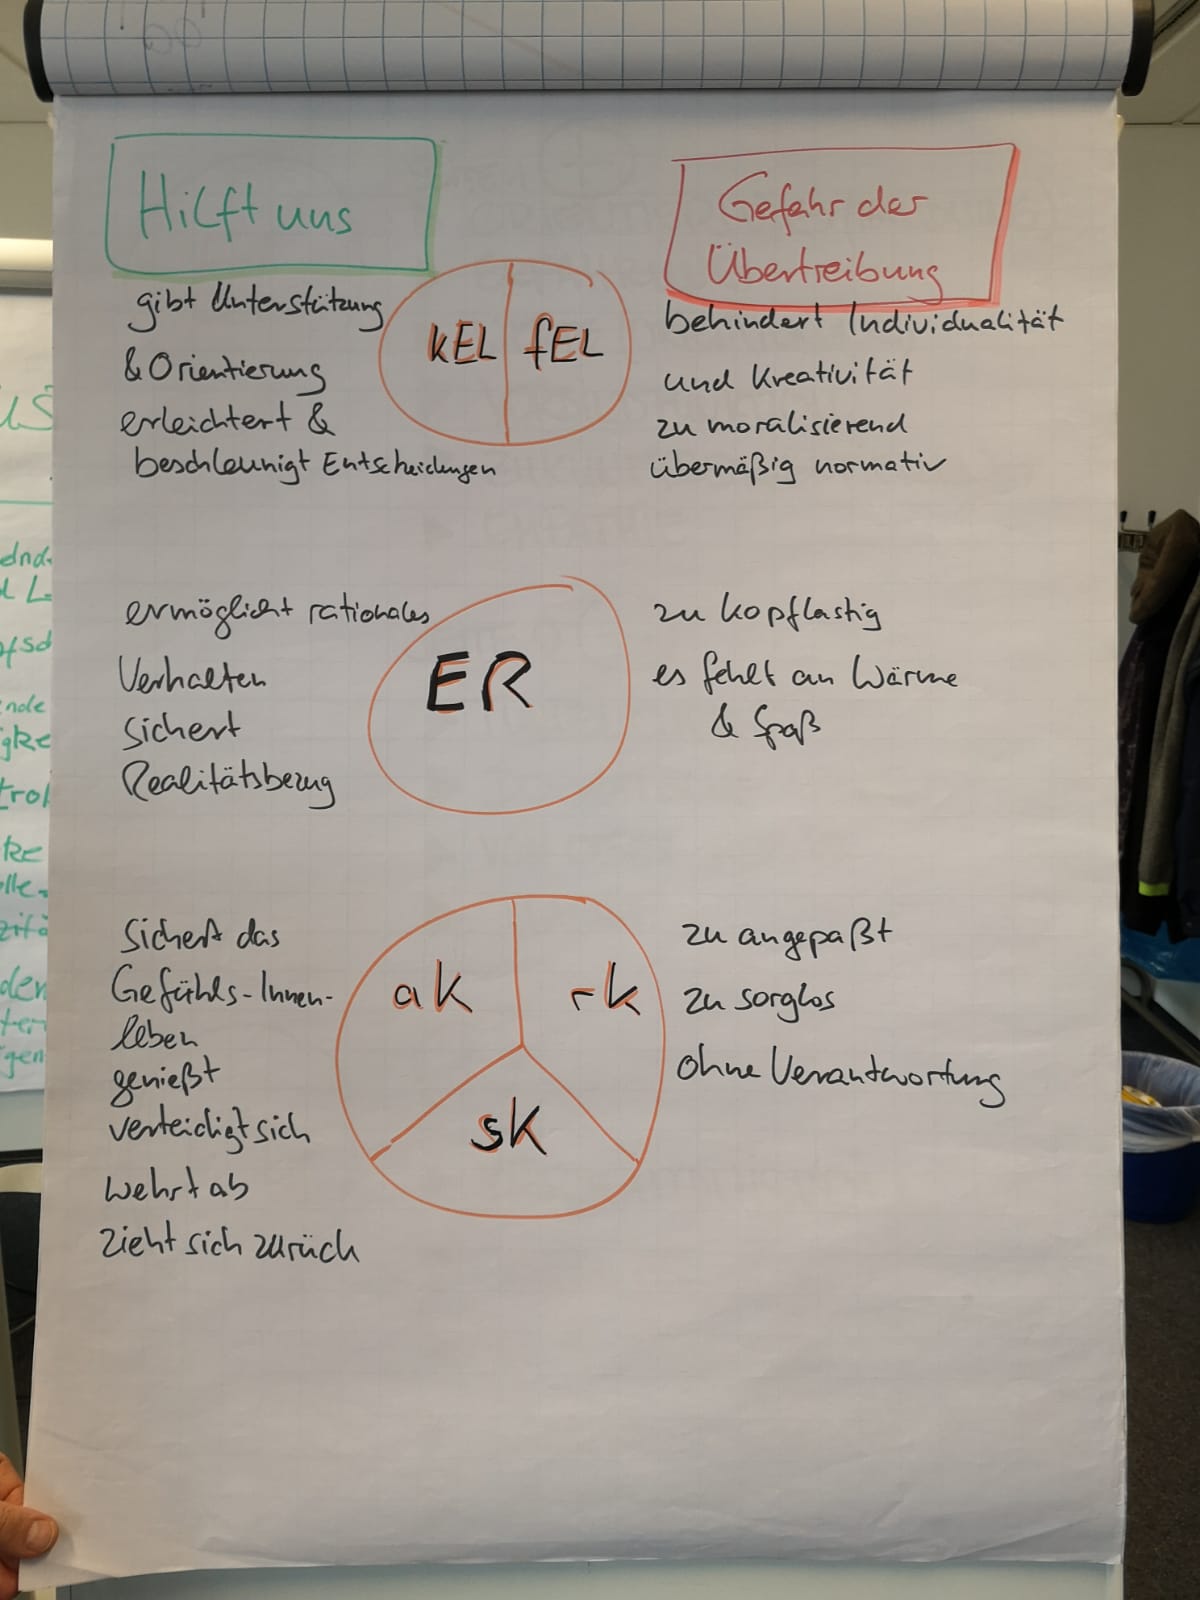 Hilft uns
Gefahr der
Übertreibung
gibt Unterstützung
& Orientierung
erleichtert &
beschleunigt Entscheidungen
kEL fEL
behindert Individualität
und Kreativität
zu moralisierend
übermäßig normativ
ermöglicht rationales
Verhalten
sichert
Realitätsbezug
ER
zu kopflastig
es fehlt an Wärme
& Spaß
Sichert das
Gefühls-Innen-
leben
genießt
verteidigt sich
wehrt ab
zieht sich zurück
ak rk
sk
zu angepaßt
zu sorglos
ohne Verantwortung